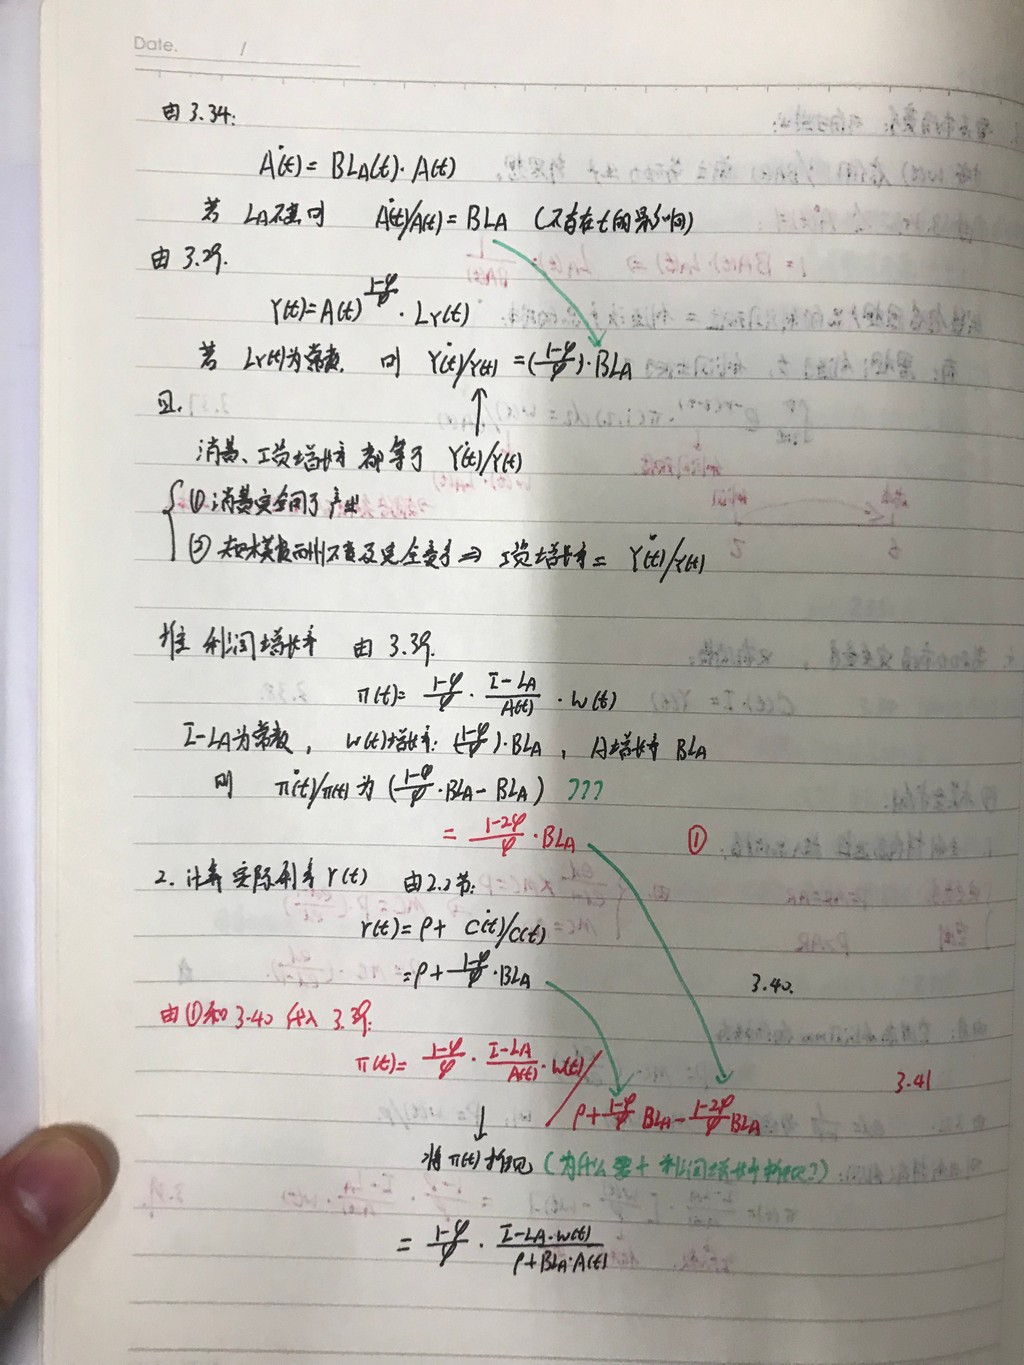 Date.      /
由3.34:
Ȧ(t) = BLA(t)·A(t)
若 LA不变 则 Ȧ(t)/A(t) = BLA (不存在t的影响)
由3.29.
Y(t) = A(t)^((1-φ)/φ) · LY(t)
若 LY(t)为常数, 则 Ẏ(t)/Y(t) = ((1-φ)/φ)·BLA
且.
消费、工资增长率 都等于 Ẏ(t)/Y(t)
① 消费完全用于产出
② 工资增长率 = Ẏ(t)/Y(t)
推 利润增长率 由 3.39.
π(t) = (1-φ)/φ · (L̄-LA)/A(t) · w(t)
L̄-LA为常数, w(t)增长率: ((1-φ)/φ)·BLA, A增长率 BLA
则 π̇(t)/π(t) 为 ((1-φ)/φ·BLA - BLA) ???
= (1-2φ)/φ · BLA ①
2. 计算 实际利率 r(t) 由2.2节:
r(t) = ρ + Ċ(t)/C(t)
= ρ + (1-φ)/φ·BLA 3.40.
由①和3.40 代入 3.39:
π(t) = (1-φ)/φ · (L̄-LA)/A(t) · w(t) / 3.41
ρ + (1-φ)/φ BLA - (1-2φ)/φ BLA
↓
将π(t)折现 (为什么要+利润增长率折现?)
= (1-φ)/φ · (L̄-LA·w(t))/(ρ+BLA·A(t))